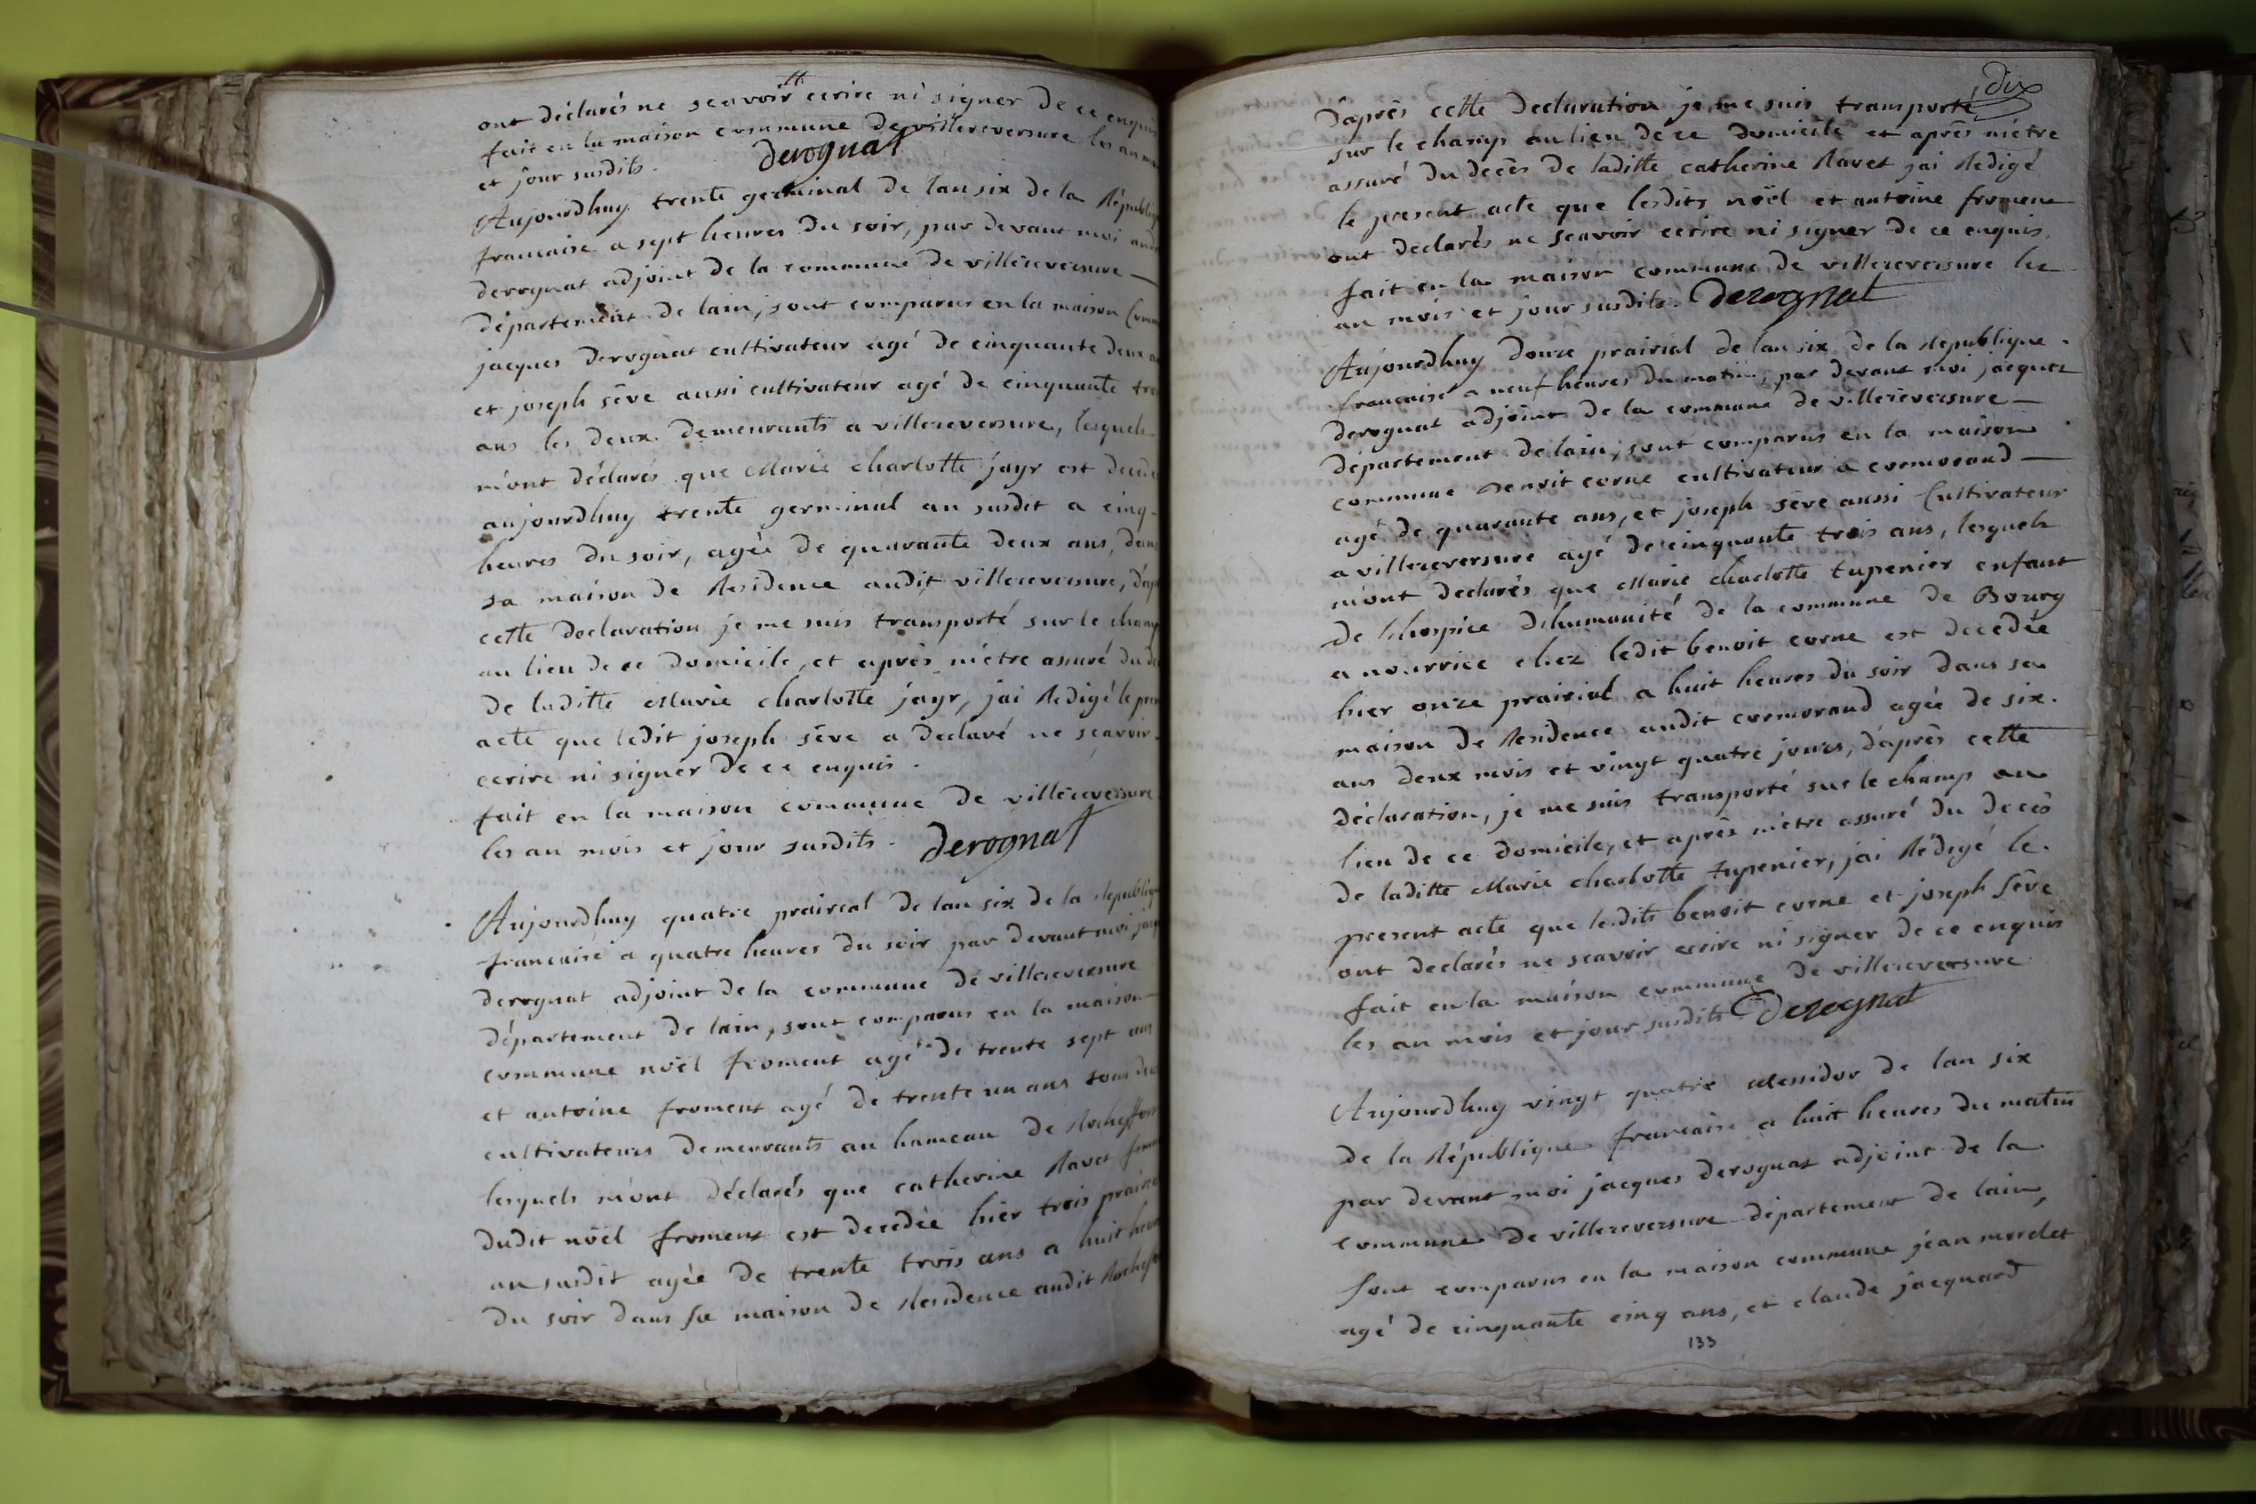 ont déclarés ne sçavoir ecrire ni signer de ce enquis
fait en la maison commune de villereversure les an mois
et jour susdits. derognat
Aujourdhuy trente germinal de lan six de la Républi
francaise a sept heures du soir, par devant moi
derognat adjoint de la commune de villereversure
département de lain, sont comparus en la maison Comm
jacques derognat cultivateur agé de cinquante deux a
et joseph séve aussi cultivateur agé de cinquante tro
ans les deux demeurants a villereversure, lesquels
m'ont déclarés que Marie charlotte jayr est decedé
aujourdhuy trente germinal an susdit a cinq
heures du soir, agée de quarante deux ans, dans
sa maison de Residence audit villereversure, d'apr
cette declaration je me suis transporté sur le champ
au lieu de ce domicile, et après m'etre assuré du de
de laditte Marie charlotte jayr, jai Redigé le pre
acte que ledit joseph séve a declaré ne sçavoir
ecrire ni signer de ce enquis.
fait en la maison commune de villereversure
les an mois et jour susdits. derognat
Aujourdhuy quatre prairial de lan six de la Republiq
francaise a quatre heures du soir par devant moi jacq
derognat adjoint de la commune de villereversure
département de lain, sont comparus en la maison
commune noël froment agé de trente sept ans
et antoine froment agé de trente un ans tous deux
cultivateurs demeurants au hameau de Rochefort
lesquels m'ont déclarés que catherine Ravet femme
dudit noël froment est decedée hier trois prairial
an susdit agée de trente trois ans a huit heur
du soir dans sa maison de Residence audit Rochefo
dix
d'après cette declaration je me suis transporté
sur le champ au lieu de ce domicile et après m'etre
assuré du decès de laditte catherine Ravet jai Redigé
le present acte que lesdits noël et antoine froment
ont declarés ne sçavoir ecrire ni signer de ce enquis
fait en la maison commune de villereversure les
an mois et jour susdits. derognat
Aujourdhuy douze prairial de lan six de la Republique
francaise a neuf heures du matin, par devant moi jacques
derognat adjoint de la commune de villereversure
département de lain, sont comparus en la maison
commune benoit corne cultivateur a cormorand
agé de quarante ans, et joseph séve aussi Cultivateur
a villereversure agé de cinquante trois ans, lesquels
m'ont declarés que Marie charlotte tupenier enfant
de l'hospice d'humanité de la commune de Bourg
a nourrice chez ledit benoit corne est decedée
hier onze prairial a huit heures du soir dans sa
maison de Residence audit cormorand agée de six
ans deux mois et vingt quatre jours, d'après cette
déclaration, je me suis transporté sur le champ au
lieu de ce domicile, et après m'etre assuré du decès
de laditte Marie charlotte tupenier, jai Rédigé le
present acte que lesdits benoit corne et joseph séve
ont declarés ne sçavoir ecrire ni signer de ce enquis
fait en la maison commune de villereversure
les an mois et jour susdits derognat
Aujourdhuy vingt quatre Messidor de lan six
de la République francaise a huit heures du matin
par devant moi jacques derognat adjoint de la
commune de villereversure département de lain,
sont comparus en la maison commune jean morelet
agé de cinquante cinq ans, et claude jacquard
133